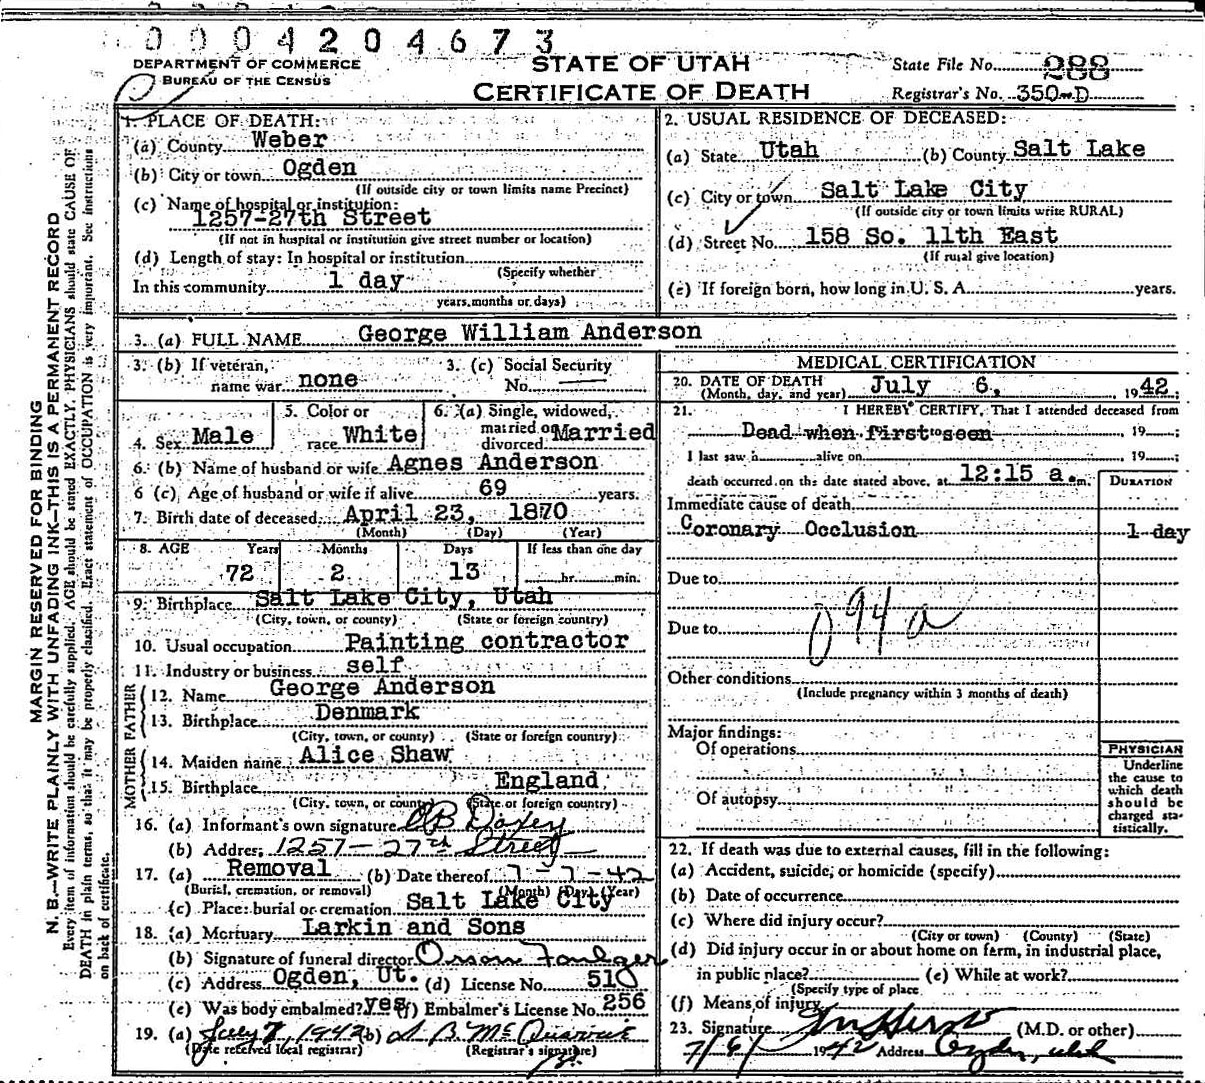 0004204673
DEPARTMENT OF COMMERCE
BUREAU OF THE CENSUS
STATE OF UTAH
CERTIFICATE OF DEATH
State File No. 288
Registrar's No. 350-D
MARGIN RESERVED FOR BINDING
N. B.—WRITE PLAINLY WITH UNFADING INK—THIS IS A PERMANENT RECORD
Every item of information should be carefully supplied. AGE should be stated EXACTLY. PHYSICIANS should state CAUSE OF
DEATH in plain terms, so that it may be properly classified. Exact statement of OCCUPATION is very important. See instructions
on back of certificate.
1. PLACE OF DEATH:
(a) County Weber
(b) City or town Ogden
(If outside city or town limits name Precinct)
(c) Name of hospital or institution:
1257-27th Street
(If not in hospital or institution give street number or location)
(d) Length of stay: In hospital or institution
(Specify whether
In this community 1 day
years, months or days)
2. USUAL RESIDENCE OF DECEASED:
(a) State Utah (b) County Salt Lake
(c) City or town Salt Lake City
(If outside city or town limits write RURAL)
(d) Street No. 158 So. 11th East
(If rural give location)
(e) If foreign born, how long in U. S. A. years.
3. (a) FULL NAME George William Anderson
3. (b) If veteran, name war none
3. (c) Social Security No.
4. Sex Male
5. Color or race White
6. (a) Single, widowed, married or divorced Married
6. (b) Name of husband or wife Agnes Anderson
6 (c) Age of husband or wife if alive 69 years.
7. Birth date of deceased April 23, 1870
(Month) (Day) (Year)
8. AGE Years Months Days If less than one day
72 2 13 hr. min.
9. Birthplace Salt Lake City, Utah
(City, town, or county) (State or foreign country)
10. Usual occupation Painting contractor
11. Industry or business self
FATHER
12. Name George Anderson
13. Birthplace Denmark
(City, town, or county) (State or foreign country)
MOTHER
14. Maiden name Alice Shaw
15. Birthplace England
(City, town, or county) (State or foreign country)
16. (a) Informant's own signature OB Doxey
(b) Address 1257-27th Street
17. (a) Removal (b) Date thereof 7-7-42
(Burial, cremation, or removal) (Month) (Day) (Year)
(c) Place: burial or cremation Salt Lake City
18. (a) Mortuary Larkin and Sons
(b) Signature of funeral director Orson Foulger
(c) Address Ogden, Ut. (d) License No. 510
(e) Was body embalmed? yes (f) Embalmer's License No. 256
19. (a) July 7, 1942 (b)
(Date received local registrar) (Registrar's signature)
MEDICAL CERTIFICATION
20. DATE OF DEATH
(Month, day, and year) July 6, 1942
21. I HEREBY CERTIFY, That I attended deceased from
Dead when first to seen 19 ;
I last saw h alive on 19 ;
death occurred on the date stated above, at 12:15 a. m.
DURATION
Immediate cause of death
Coronary Occlusion 1 day
Due to
094a
Due to
Other conditions
(Include pregnancy within 3 months of death)
Major findings:
Of operations
Of autopsy
PHYSICIAN
Underline
the cause to
which death
should be
charged sta-
tistically.
22. If death was due to external causes, fill in the following:
(a) Accident, suicide, or homicide (specify)
(b) Date of occurrence
(c) Where did injury occur?
(City or town) (County) (State)
(d) Did injury occur in or about home on farm, in industrial place,
in public place? (e) While at work?
(Specify type of place
(f) Means of injury
23. Signature (M.D. or other)
7/6/ 1942 Address Ogden, Utah